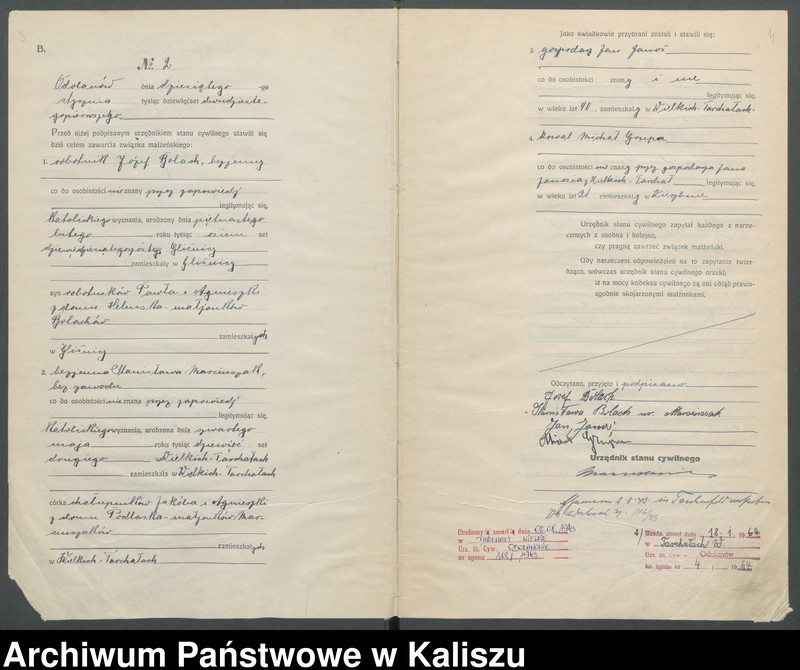 B.
№ 2
Odolanów dnia dziesiątego go
stycznia tysiąc dziewięćset dwudziestego
pierwszego
Przed niżej podpisanym urzędnikiem stanu cywilnego stawili się
dziś celem zawarcia związku małżeńskiego:
1. robotnik Józef Bolach, bezżenny
co do osobistości nieznany przez zapowiedź
legitymując się,
katolickiego wyznania, urodzony dnia piętnastego
lutego roku tysiąc osiem set
Gliśnicy
zamieszkały w Gliśnicy
syn robotników Pawła i Agnieszki
z domu małżonków
Bolachów
zamieszkałych
w Gliśnicy
2. bezżenna Stanisława Marciniszak,
bez zawodu
co do osobistości nieznana przez zapowiedź
legitymując się,
katolickiego wyznania, urodzona dnia czwartego
maja roku tysiąc dziewięć set
drugiego w Wielkich-Tarchałach
zamieszkała w Wielkich-Tarchałach
córka chałupników Jakóba i Agnieszki
z domu Podlaska-małżonków Mar-
zamieszkałych
w Wielkich-Tarchałach
4
Jako świadkowie przybrani zostali i stawili się:
3. gospodarz Jan Janoś
co do osobistości znany i nie
legitymując się,
w wieku lat 40, zamieszkały w Wielkich-Tarchałach
4. kowal Michał Grupa
co do osobistości nieznany przez gospodarza Jana
Janosia z Wielkich-Tarchał legitymując się,
w wieku lat zamieszkały w
Urzędnik stanu cywilnego zapytał każdego z narze-
czonych z osobna i kolejno,
czy pragną zawrzeć związek małżeński.
Gdy narzeczeni odpowiedzieli na to zapytanie twier-
dząco, wówczas urzędnik stanu cywilnego orzekł;
iż na mocy kodeksu cywilnego są oni odtąd prawo-
zgodnie skojarzonymi małżonkami.
Odczytano, przyjęto i podpisano
Józef Bolach
Stanisława Bolach ur.
Jan Janoś
Urzędnik stanu cywilnego
1943
w TARCHAŁY WIELKIE
Urz. St. Cyw. ODOLANÓW
nr zgonu 118/1943
2) zmarł dnia 18.1.1964
w Tarchałach W.
Urz. st. cyw. - Odolanów
nr zgonu 4 / 1964
Archiwum Państwowe w Kaliszu